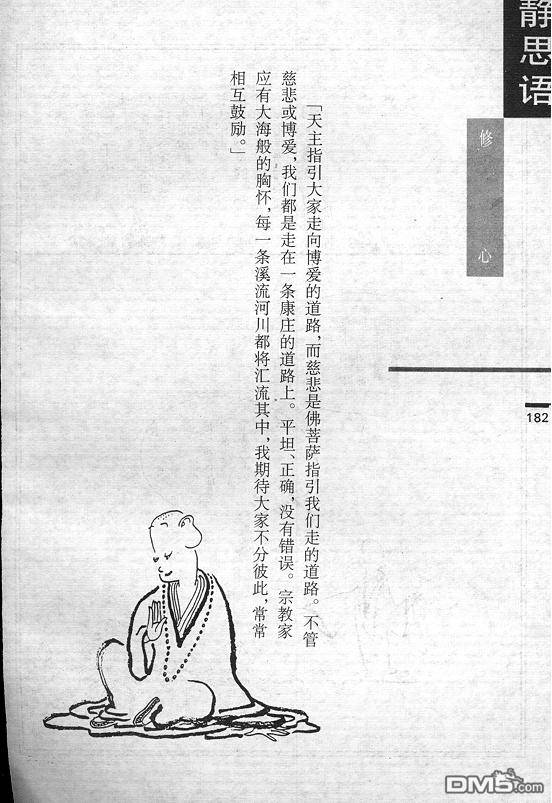 静思语
修心
182
「天主指引大家走向博爱的道路,而慈悲是佛菩萨指引我们走的道路。不管
慈悲或博爱,我们都是走在一条康庄的道路上。平坦、正确,没有错误。宗教家
应有大海般的胸怀,每一条溪流河川都将汇流其中,我期待大家不分彼此,常常
相互鼓励。」
DM5.com